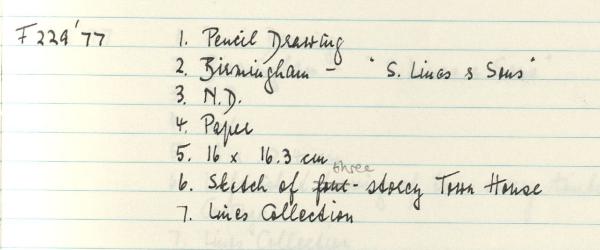 F229'77 1. Pencil Drawing
2. Birmingham - "S. Lines & Sons"
3. N.D.
4. Paper
5. 16 x 16.3 cm
three
6. Sketch of four-storey Town House
7. Lines Collection